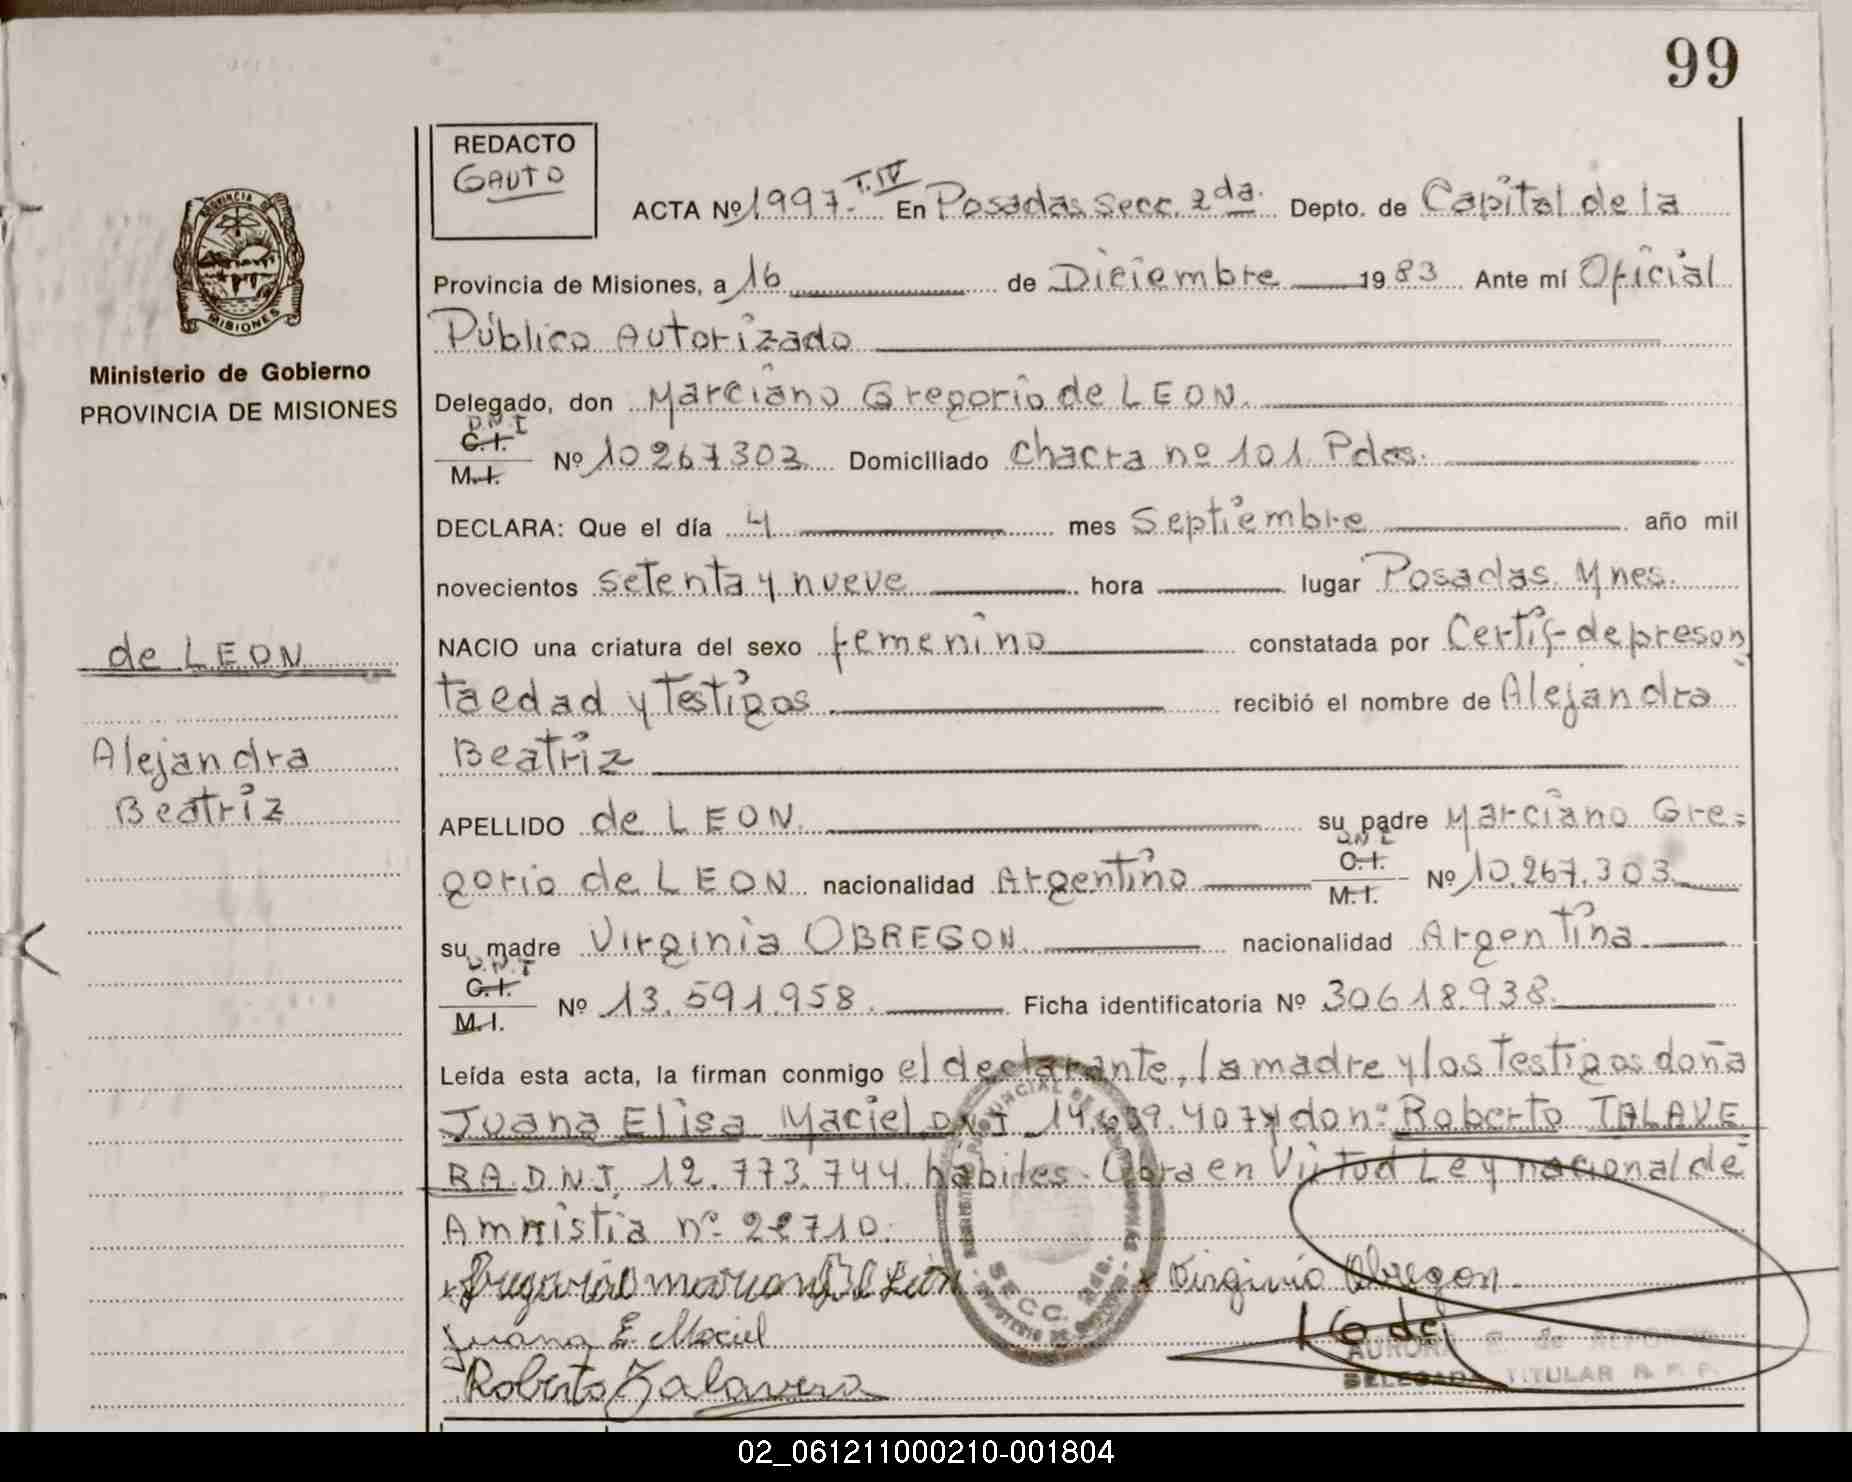 99
REDACTO
GAUTO
ACTA Nº 1997.- T.IV En Posadas Secc. 2da. Depto. de Capital de la
PROVINCIA DE
MISIONES
Provincia de Misiones, a 16 de Diciembre 1983 Ante mí Oficial
Público Autorizado
Ministerio de Gobierno
PROVINCIA DE MISIONES
Delegado, don Marciano Gregorio de LEON.
D.N.I
C.I. Nº 10267303 Domiciliado Chacra nº 101 Pdas.
M.I.
DECLARA: Que el día 4 mes Septiembre año mil
novecientos setenta y nueve hora lugar Posadas Mnes.
NACIO una criatura del sexo femenino constatada por Certif- de preson
de LEON
ta edad y testigos recibió el nombre de Alejandra
Alejandra
Beatriz
Beatriz
APELLIDO de LEON su padre Marciano Gre=
D.N.I
gorio de LEON nacionalidad Argentino C.I. Nº 10.267.303
M.I.
su madre Virginia OBREGON nacionalidad Argentina
D.N.I
C.I. Nº 13.591.958. Ficha identificatoria Nº 30618.938.
M.I.
Leída esta acta, la firman conmigo el declarante, la madre y los testigos doña
Juana Elisa Maciel DNI 14.609.407 y don: Roberto TALAVE
RA D.N.I. 12.773.744. habiles. Obra en Virtud Ley nacional de
Amnistia nº 22710.
Virginia Obregon
Juana E. Maciel
Roberto Talavera
SECC. 2da.
AURORA E. de
DELEGADA TITULAR R. P. P.
02_061211000210-001804